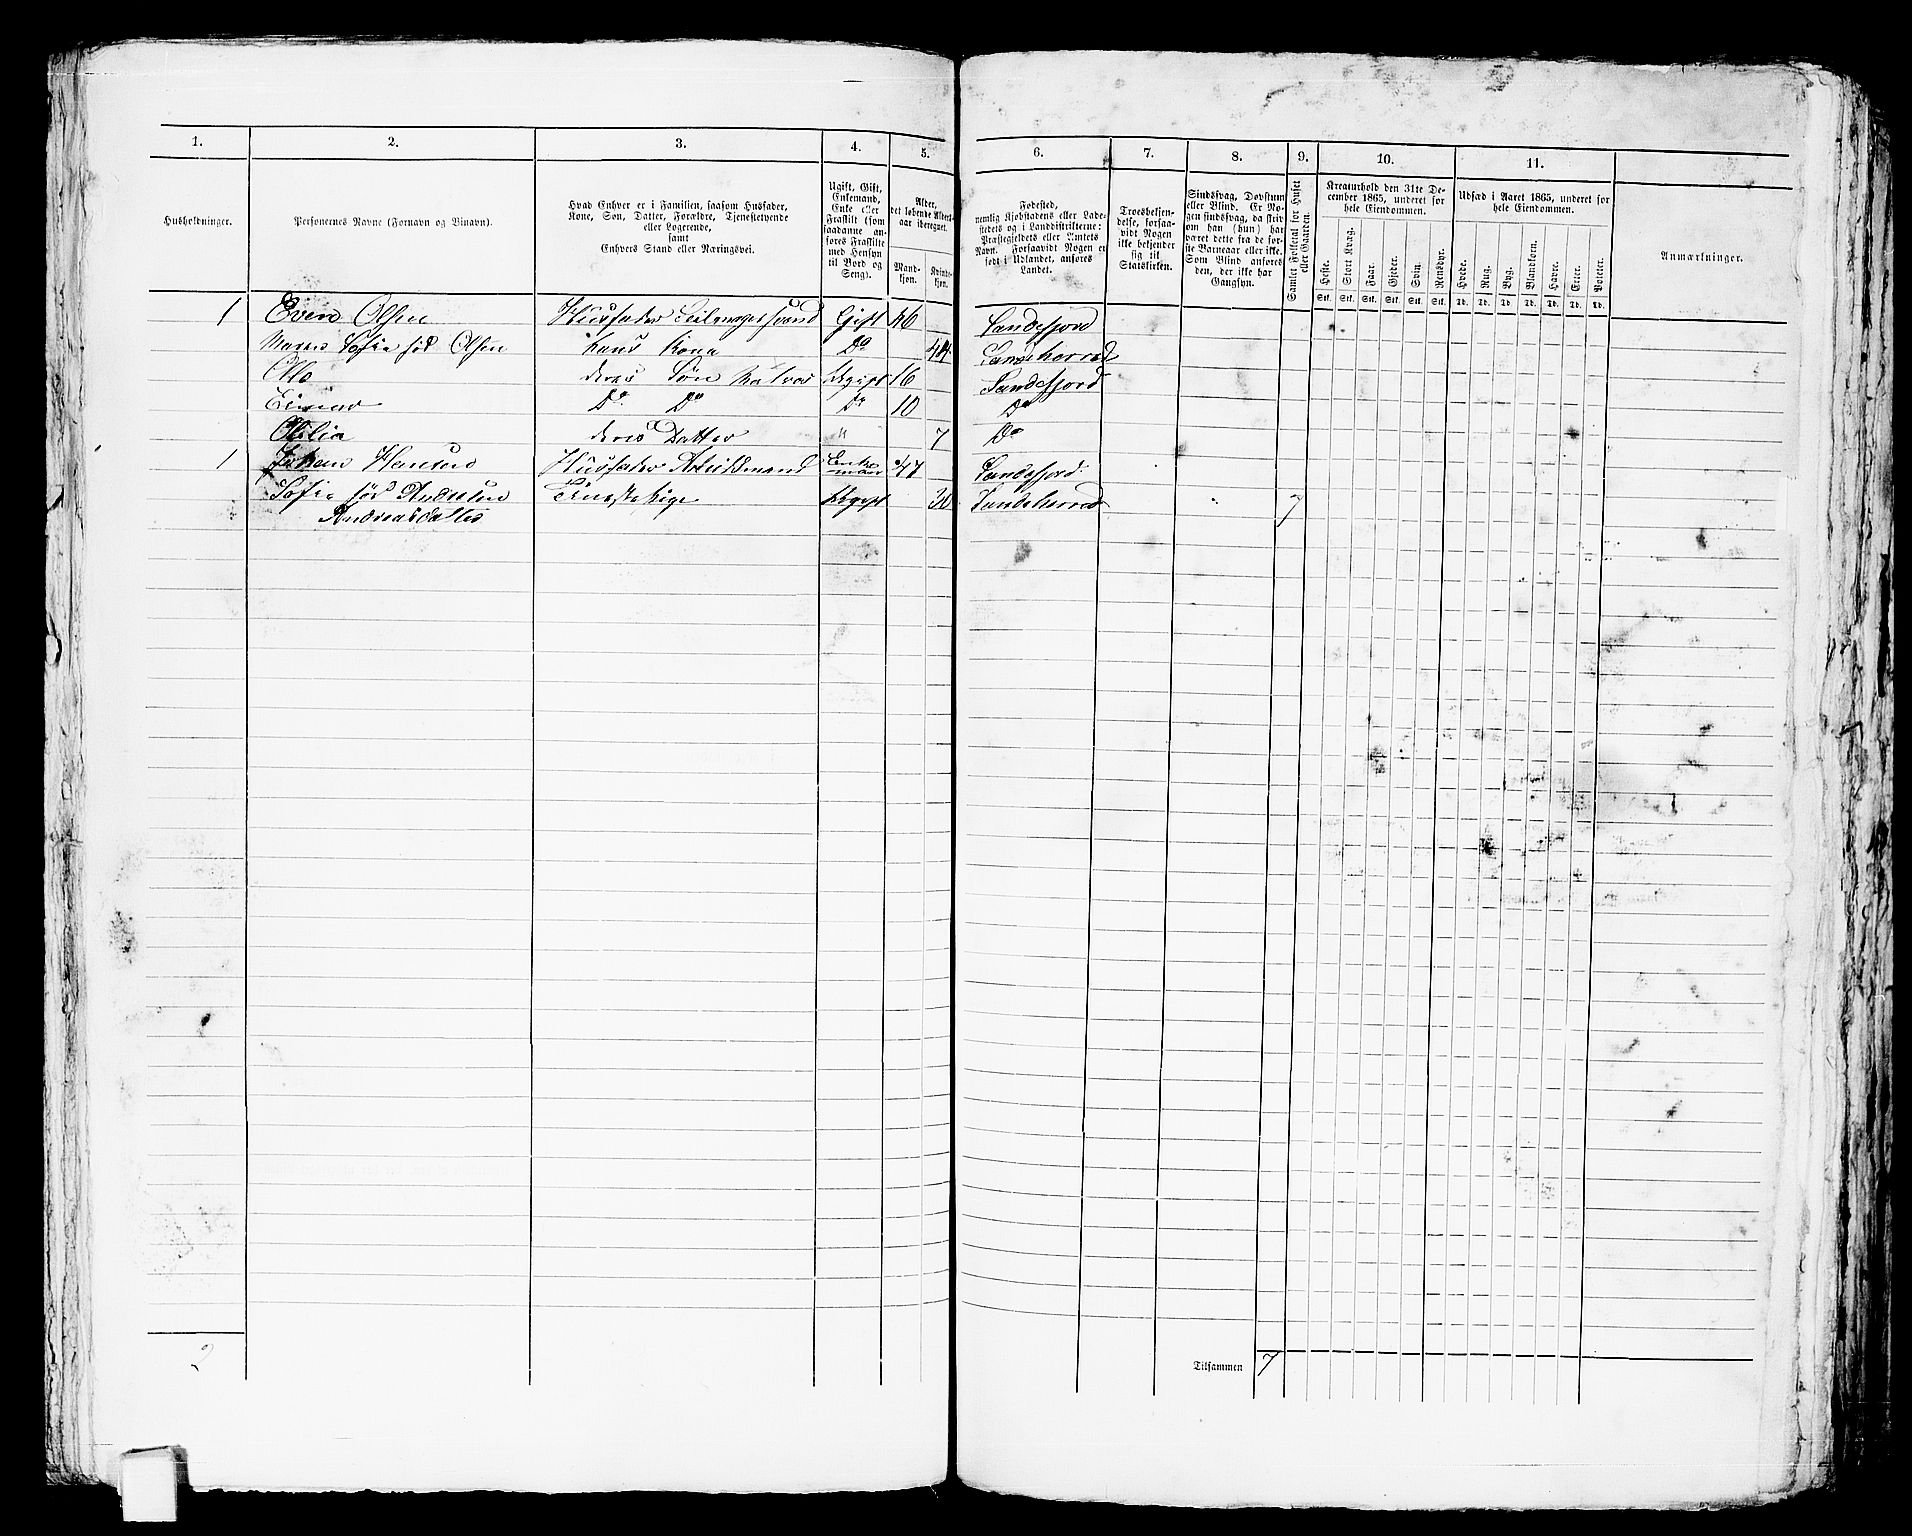 1. 2. 3. 4. 5. 6. 7. 8. 9. 10. 11.
Husholdninger.
Personernes Navne (Fornavn og Binavn).
Hvad Enhver er i Familien, saasom Husfader,
Kone, Søn, Datter, Forældre, Tjenestetyende
eller Logerende,
samt
Enhvers Stand eller Næringsvei.
Ugift, Gift,
Enkemand,
Enke eller
Fraskilt (som
saadanne an-
føres Fraskilte
med Hensyn
til Bord og
Seng).
Alder,
det løbende Alders-
aar iberegnet.
Mand-
kjøn.
Kvinde-
kjøn.
Fødested,
nemlig Kjøbstadens eller Lade-
stedets og i Landdistrikterne:
Præstegjeldets eller Amtets
Navn. Forsaavidt Nogen er
født i Udlandet, anføres
Landet.
Troesbekjen-
delse, forsaa-
vidt Nogen
ikke bekjender
sig til
Statskirken.
Sindssvag, Døvstum
eller Blind. Er No-
gen sindssvag, da skriv
om han (hun) har
været dette fra de før-
ste Barneaar eller ikke.
Som Blind anføres
den, der ikke har
Gangsyn.
Samlet Folketal for Huset
eller Gaarden.
Kreaturhold den 31te De-
cember 1865, underet for
hele Eiendommen.
Heste. Stort Kvæg. Faar. Gjeder. Svin. Rensdyr.
Stk. Stk. Stk. Stk. Stk. Stk.
Udsæd i Aaret 1865, underet for
hele Eiendommen.
Hvede. Rug. Byg. Blandkorn. Havre. Erter. Poteter.
Td. Td. Td. Td. Td. Td. Td.
Anmærkninger.
1 Even Olsen Husfader Seilmagersvend Gift 46 Sandefjord
Maren Sofia fød Olsen hans Kone Do 44 Sandeherred
Ole deres Søn Matros Ugift 16 Sandefjord
Do Do Do 10 Do
deres Datter " 7 Do
1 Johan Hansen Husfader Arbeidsmand Enke-
mand 47 Sandefjord
Sofie fød Andersen Tjenestepige Ugift 30 Sandeherred 7
Andreasdatter
2
Tilsammen 7